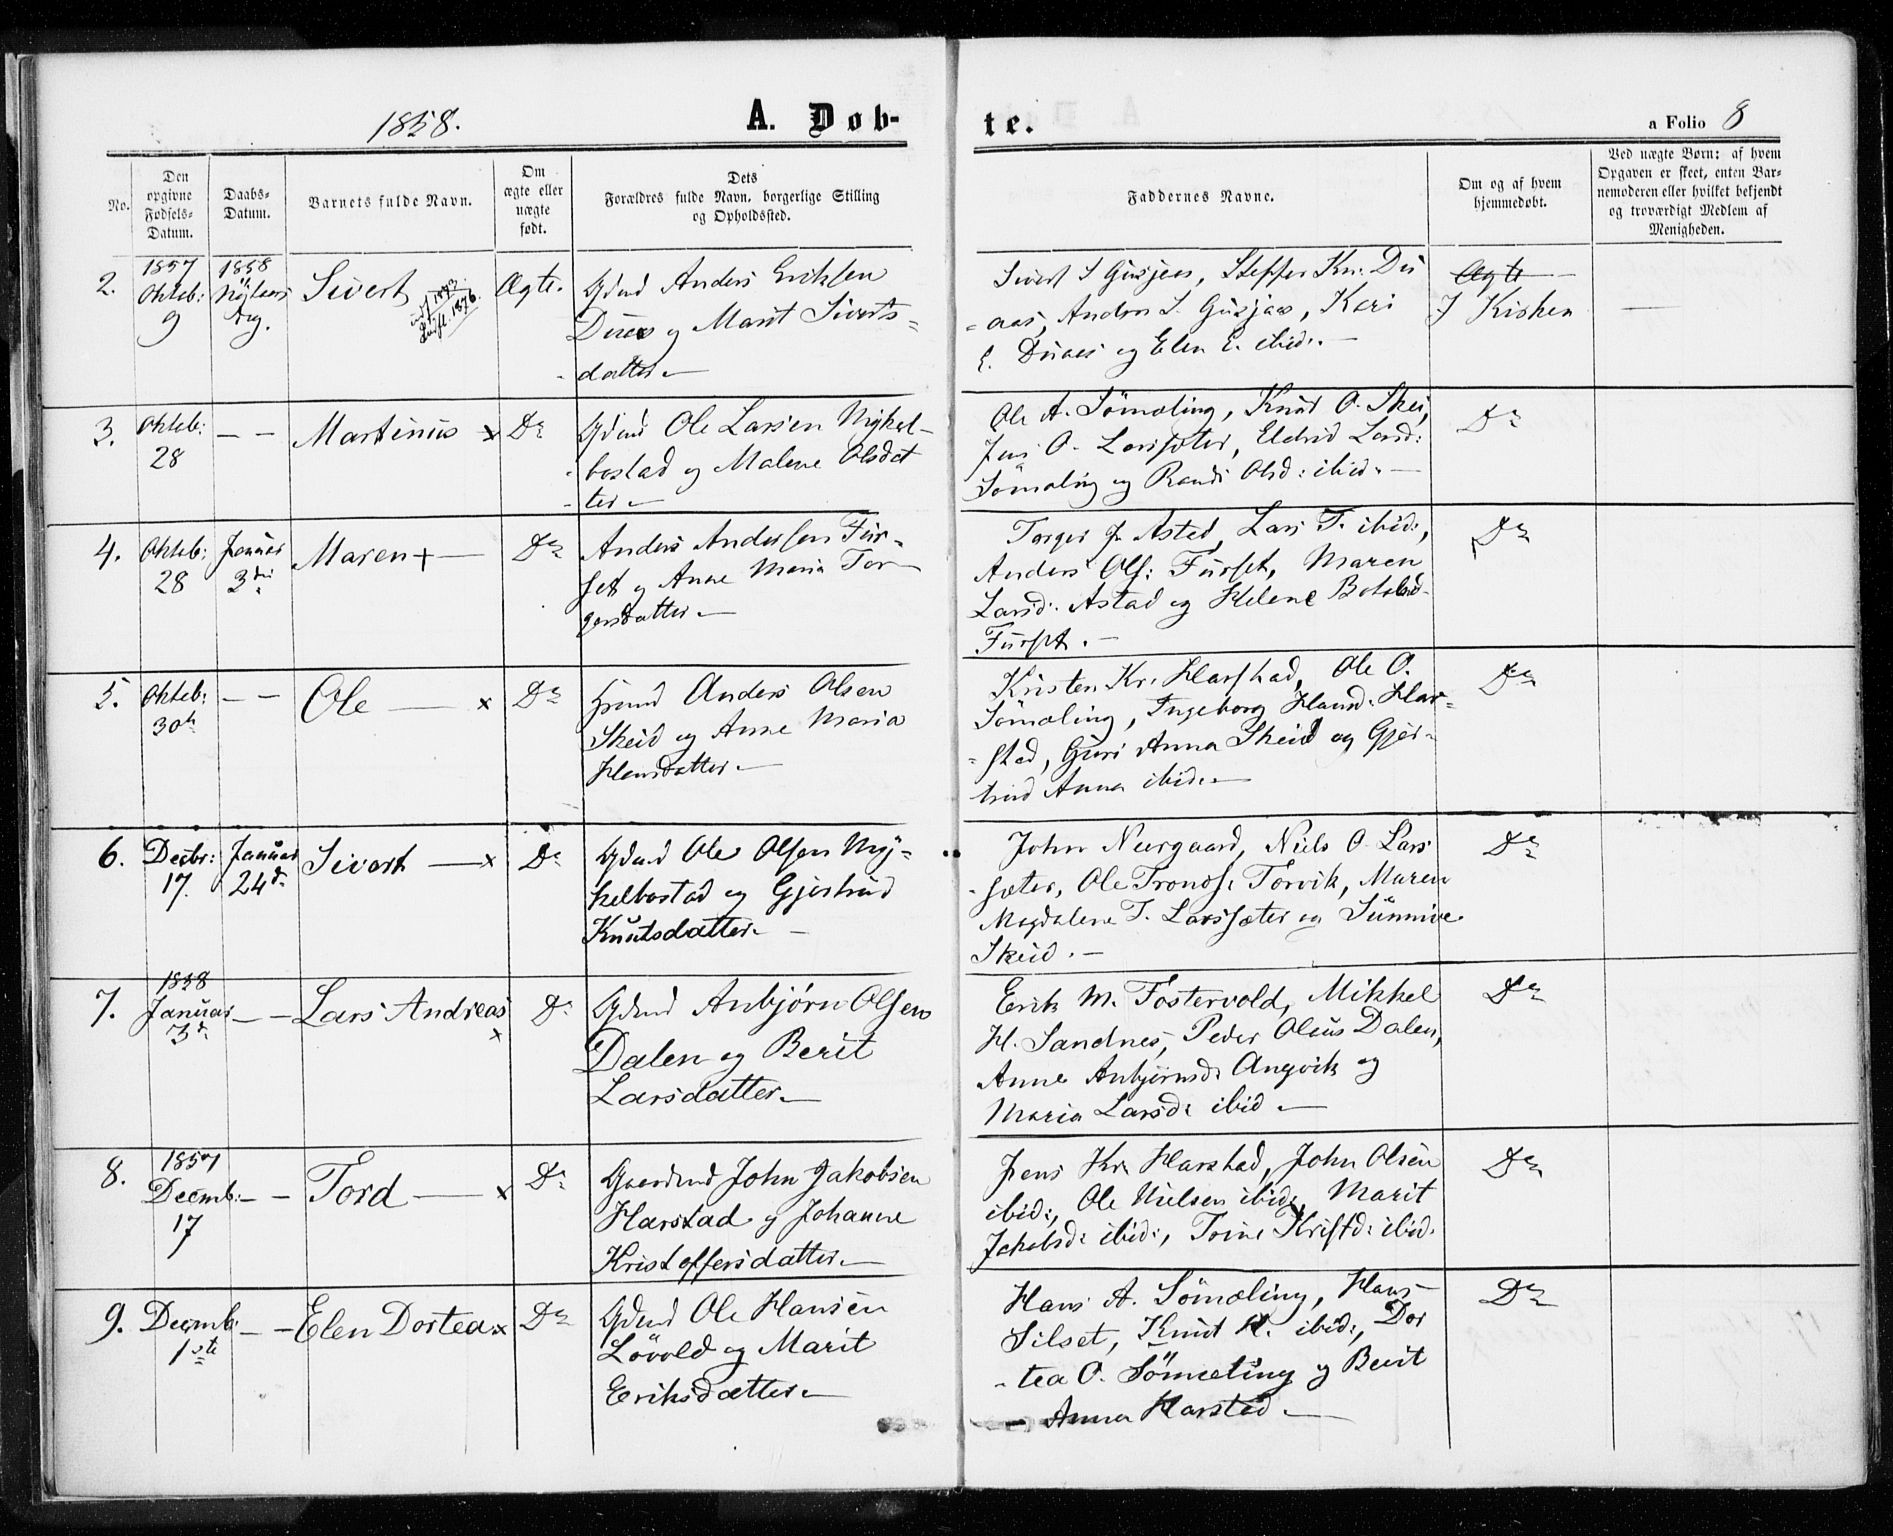 1858.
A. Døb-
te.
a Folio 8
No.
Den
opgivne
Fødsels-
Datum.
Daabs-
Datum.
Barnets fulde Navn.
Om
ægte eller
uægte
født.
Dets
Forældres fulde Navn, borgerlige Stilling
og Opholdssted.
Faddernes Navne.
Om og af hvem
hjemmedøbt.
Ved uægte Børn: af hvem
Opgaven er skeet, enten Bar-
nemoderen eller hvilket bekjendt
og troværdigt Medlem af
Menigheden.
2.
1857
Oktob:
9
1858
Nÿtaars
dag.
Sivert
1876.
Ægte.
Gdmd Anders Eriksen
og Marit Siverts-
datter
Sivert S Gusjaas, Steffen Kn.
Anders S. Gusjaas, Kari
E. og Elen E. ibid.
Ægte
I Kirken
3.
Oktob:
28
— —
Martinus x
Do
Gdmd Ole Larsen Mykel-
bostad og Malene Olsdat
ter
Ole A. Sömæling, Knud O. Skei,
Jens O. Larssæter, Eldrid Larsd:
Sömæling og Randi Olsd: ibid.
Do
4.
Oktob:
28
Januar
3die
Maren +
Do
Anders Andersen Fur-
set og Anne Maria Tor
gersdatter
Torger J. Astad, Lars T. ibid:,
Anders Ols: Furset, Maren
Larsd: Astad og Helene
Furset.
Do
5.
Oktob:
30te
— —
Ole x
Do
Anders Olsen
Skeid og Anne Maria
Hansdatter
Kristen Kr. Harstad, Ole O.
Sömæling, Ingeborg Hansd. Har-
stad, Guri Anna Skeid og Gjer-
trud Anna ibid.
Do
6.
Decbr:
17.
Januar
24de
Sivert x
Do
Gdmd Ole Olsen Mÿ-
kelbostad og Gjertrud
Knutsdatter
John Neergaard, Niels O. Lars
sæter, Ole Tronds: Torvik, Maren
Magdalene T. Larssæter og Sünnive
Skeid.
Do
7.
1858
Januar
3de
— —
Lars Andreas
x
Do
Gdmd Anbjørn Olsen
Dalen og Berit
Larsdatter
Erik M. Fostervold, Mikkel
H. Sandnes, Peder Oleus Dalen,
Anne Anbjørnsd: Angvik og
Maria Larsd: ibid
Do
8.
1857
Decmb:
17
— —
Tord x
Do
Gaardmd John Jakobsen
Harstad og Johanne
Kristoffersdatter
Jens Kr. Harstad, John Olsen
ibid:, Ole Nielsen ibid:, Marit
Jakobsd: ibid:, Trine Kristd: ibid.
Do
9.
Decmb:
1ste
— —
Elen Dortea x
Do
Gdmd Ole Hansen
Lövold og Marit
Eriksdatter
Hans A. Sömæling, Hans
Silset, Knut H. ibid:, Dor
tea O. Sömæling og Berit
Anna Harstad
Do